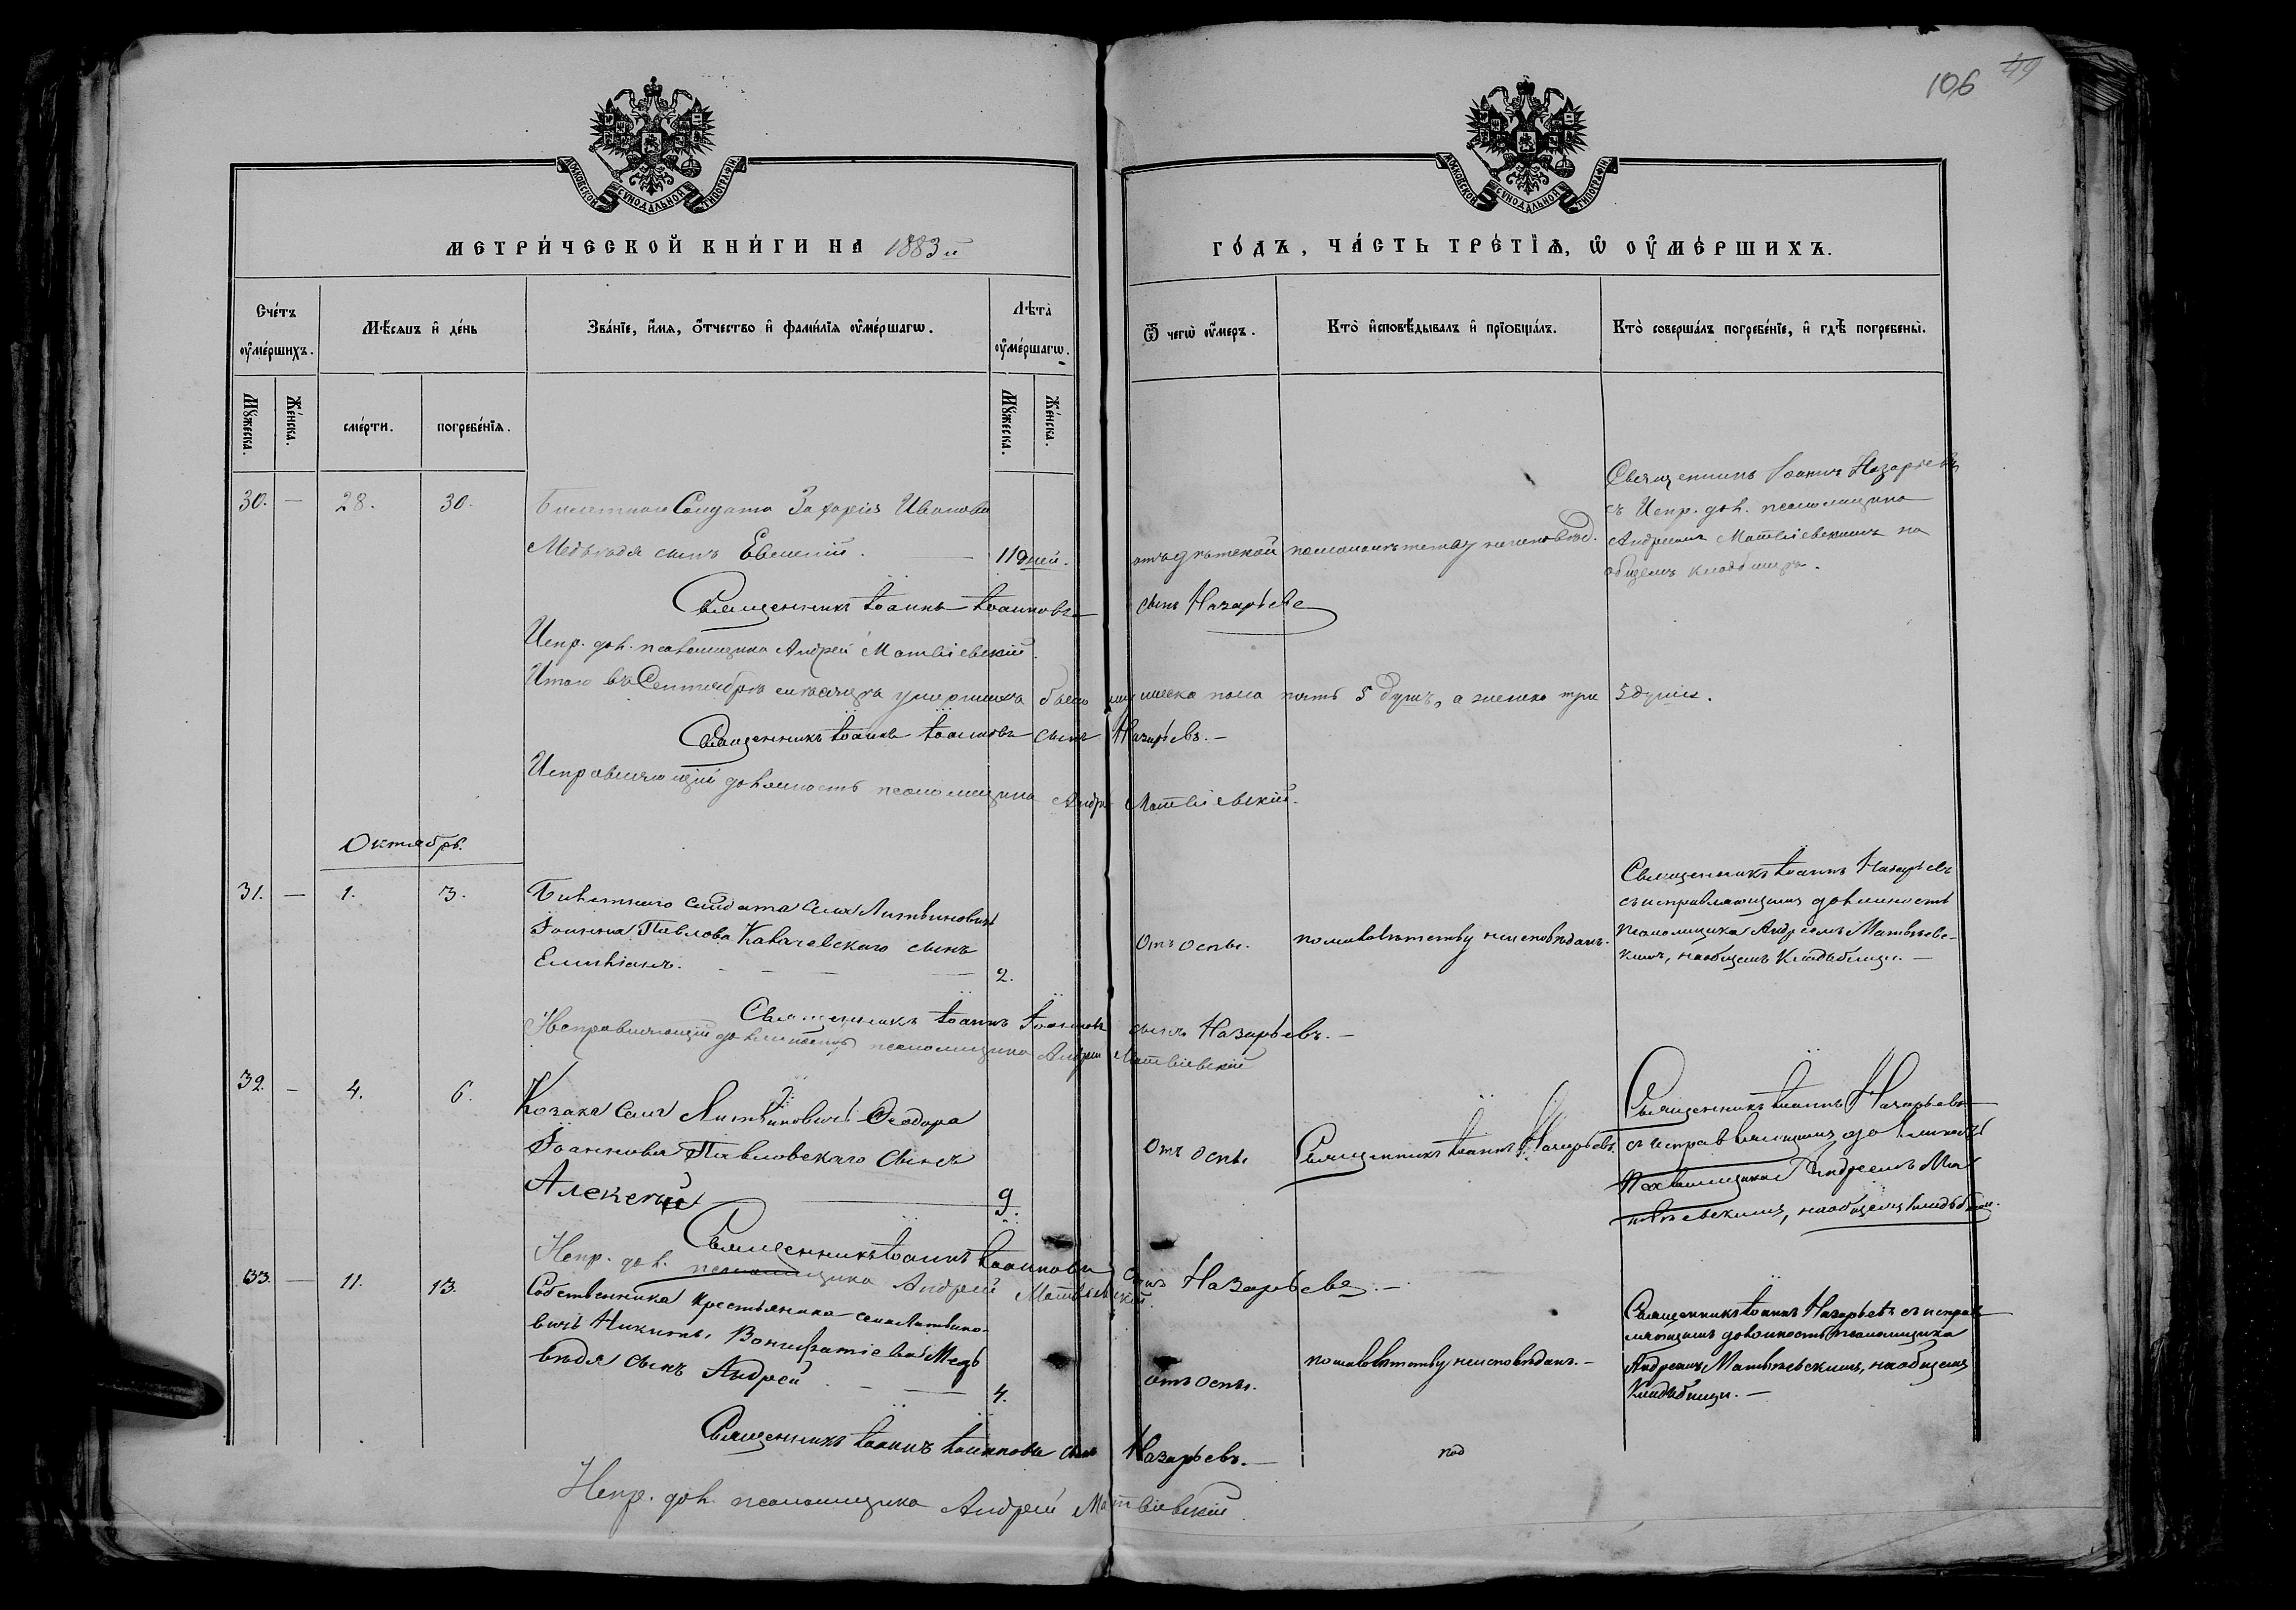 106 49
МОСКОВСКОЙ СѴНОДАЛЬНОЙ ТИПОГРАФІИ
МОСКОВСКОЙ СѴНОДАЛЬНОЙ ТИПОГРАФІИ
МЕТРИ́ЧЕСКОЙ КНИ́ГИ НА 1883 й
ГО́ДЪ, ЧА́СТЬ ТРЕ́ТІѦ, Ѡ ОУМЕ́РШИХЪ.
Сче́тъ оуме́ршихъ.
Мѣ́сяцъ и де́нь
Зва́нїе, и́мя, о́тчество и фами́лїя оуме́ршагѡ.
Лѣта̀ оуме́ршагѡ.
Ѿ чегѡ̀ оу́меръ.
Кто̀ исповѣ́дывалъ и прїобща́лъ.
Кто̀ соверша́лъ погребе́нїе, и гдѣ̀ погребены̀.
Му́жеска. Же́нска.
сме́рти. погребе́нїя.
Му́жеска. Же́нска.
30. — 28. 30.
Билетнаго Солдата Захарія Иванова
Медвѣдя сынъ Евгеній. — 11 дней.
отъ дѣтской
помалолѣтству неисповѣд.
Священникъ Іоаннъ Назарьевъ
съ Испр. дол. псаломщика
Андреемъ Матвіевскимъ на
общемъ кладбищѣ.
Священникъ Іоаннъ Іоанновъ сынъ Назарьевъ
Испр. дол. псаломщика Андрей Матвіевскій.
Итого въ Сентябрѣ мѣсяцѣ умершихъ было мужеска пола пять 5 душъ, а женска три 3 души.
Священникъ Іоаннъ Іоанновъ сынъ Назарьевъ. —
Исправляющій должность псаломщика Андрей Матвіевскій.
Октябрь.
31. — 1. 3.
Билетнаго солдата села Литвиновичъ
Іоанна Павлова Ковалевскаго сынъ
Емиліанъ. — 2.
Отъ оспы.
помалолѣтству неисповѣданъ.
Священникъ Іоаннъ Назарьевъ
съ исправляющимъ должность
псаломщика Андреемъ Матвѣев-
кимъ, наобщемъ Кладбищѣ. —
Священникъ Іоаннъ Іоанновъ сынъ Назарьевъ. —
Исправляющій должность псаломщика Андрей Матвіевскій
32. — 4. 6.
Козака села Литвиновичъ Ѳеодора
Іоаннова Павловскаго сынъ
Алексѣй — 9.
Отъ оспы
Священникъ Іоаннъ Назарьевъ.
Священникъ Іоаннъ Назарьевъ
съ исправляющимъ должность
Псаломщика Андреемъ Мат
вѣевскимъ, наобщемъ кладбищѣ.
Священникъ Іоаннъ Іоанновъ сынъ Назарьевъ. —
Испр. дол. псаломщика Андрей Матвіевскій.
33. — 11. 13.
Собственника крестьянина села Литвино-
вичъ Никиты Вонифатіева Медъ
вѣдя сынъ Андрей — 4.
отъ оспы.
помалолѣтству неисповѣданъ. —
Священникъ Іоаннъ Назарьевъ съ исправ
ляющимъ должность псаломщика
Андреемъ Матвѣевскимъ, наобщемъ
Кладбищѣ. —
Священникъ Іоаннъ Іоанновъ сынъ Назарьевъ. —
под
Испр. дол. псаломщика Андрей Матвіевскій